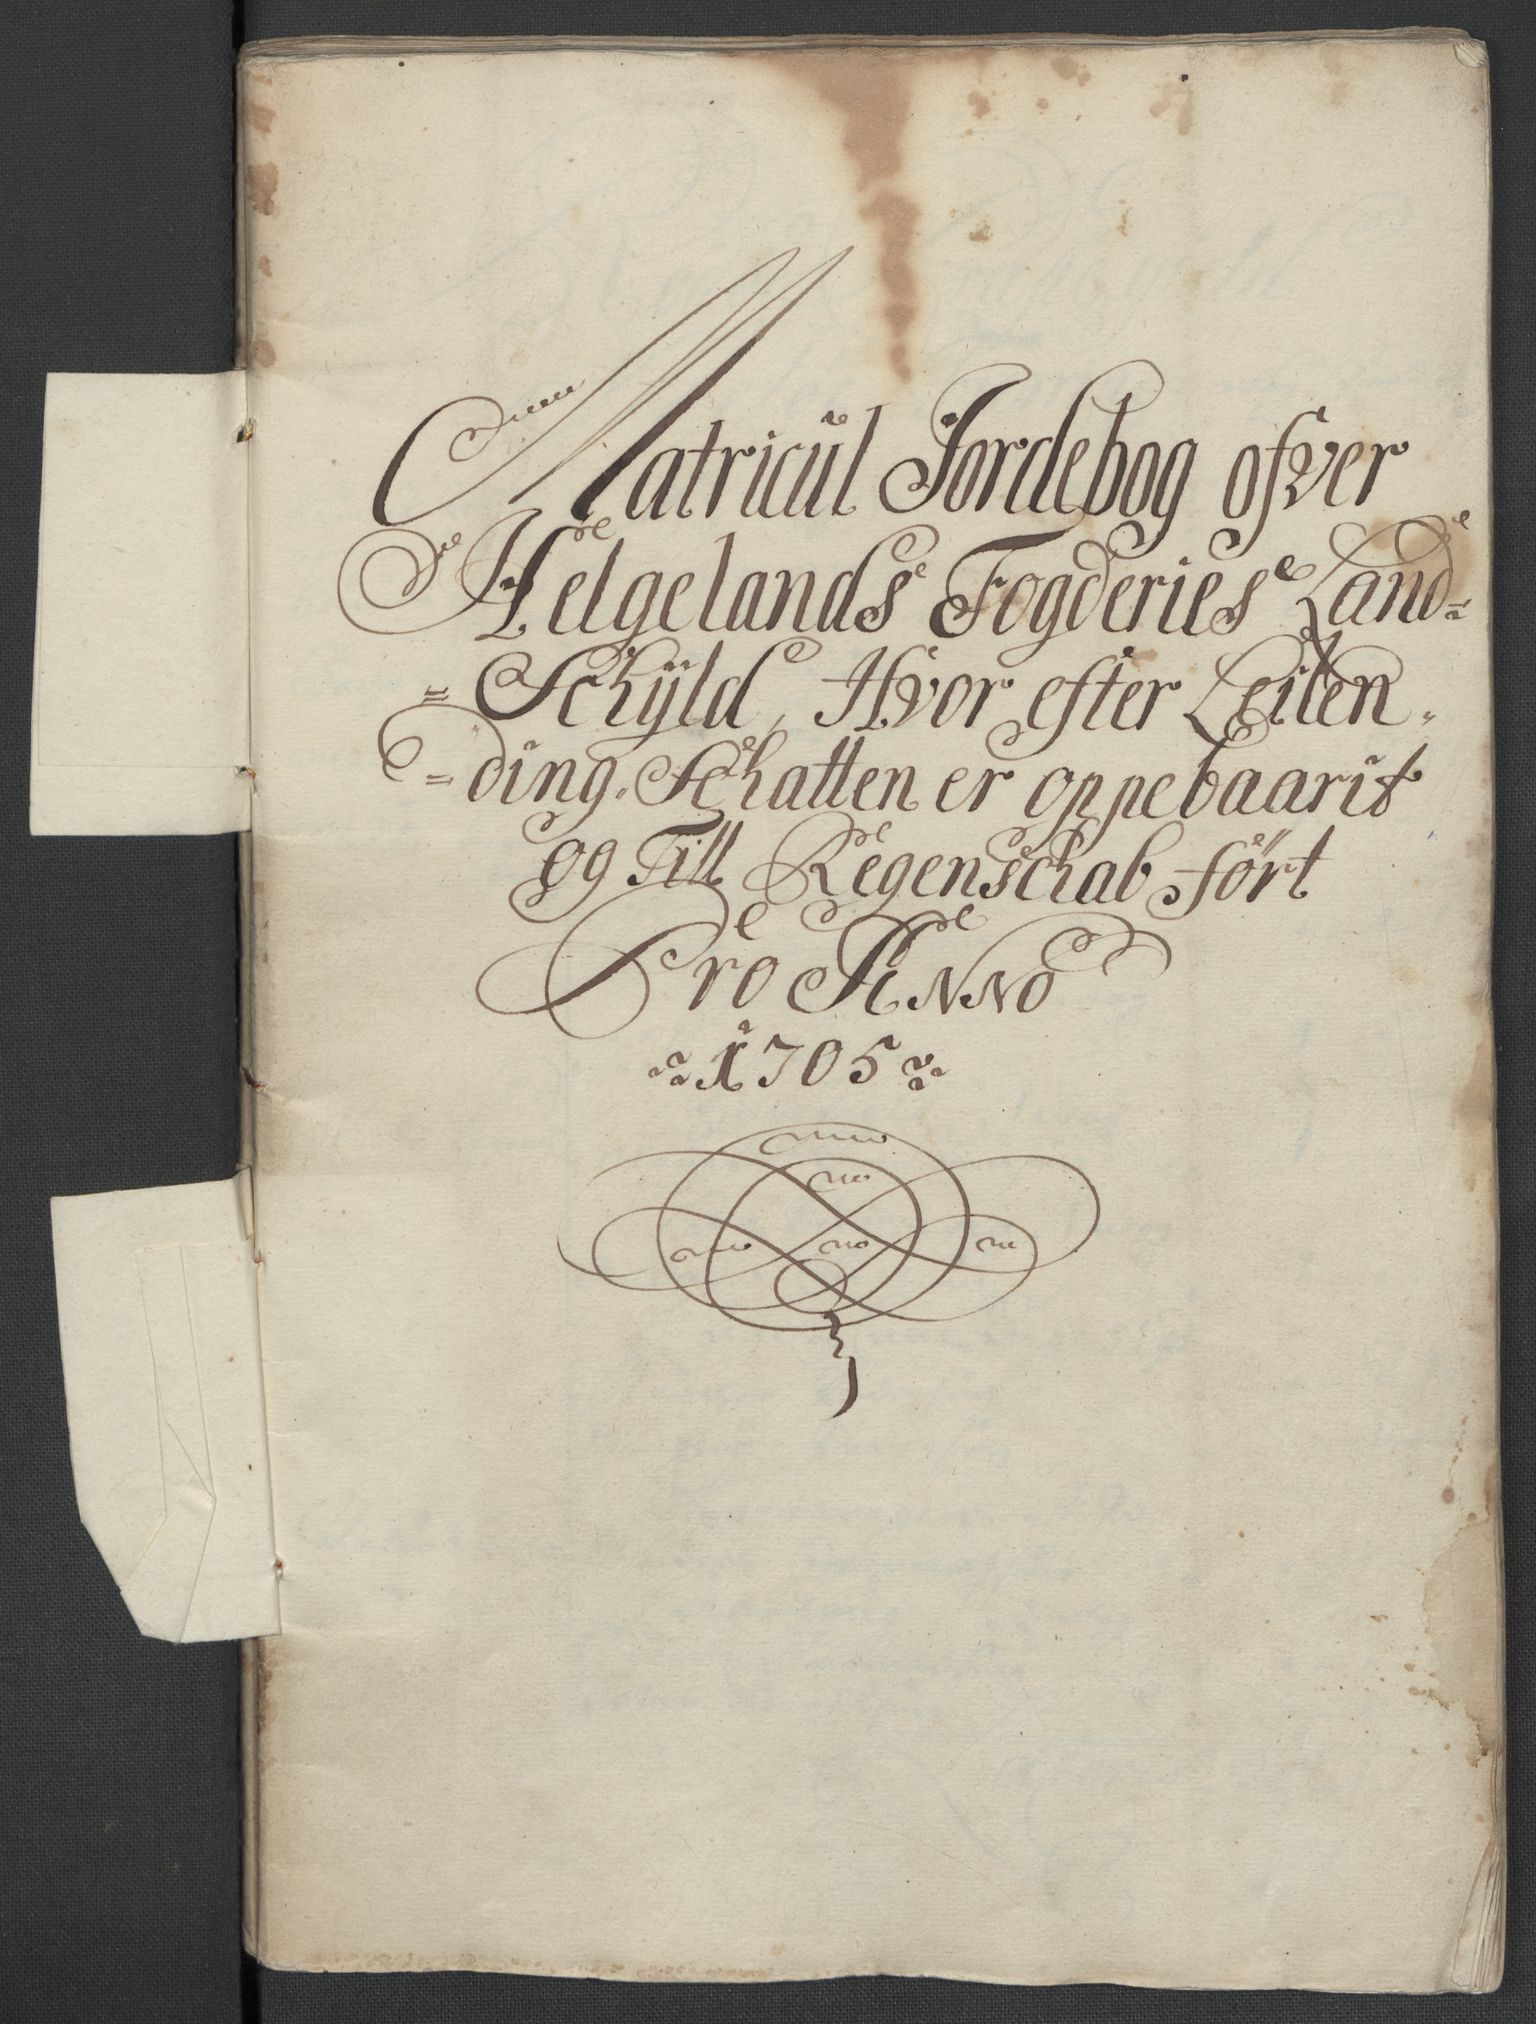 Matricul Jordebog ofver
Helgelands Fogderies Land=
=Schÿld, Hvor efter Leilen=
=ding. Schatten er oppebaarit
og Till Regenschab fört
Pro Anno
1705